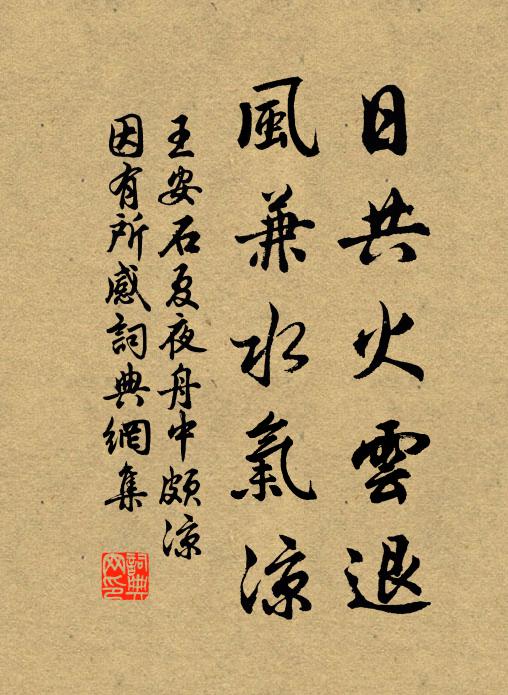 日共火雲退
風兼水氣涼
王安石夏夜舟中頗涼
因有所感詞典網集
詞典
网印